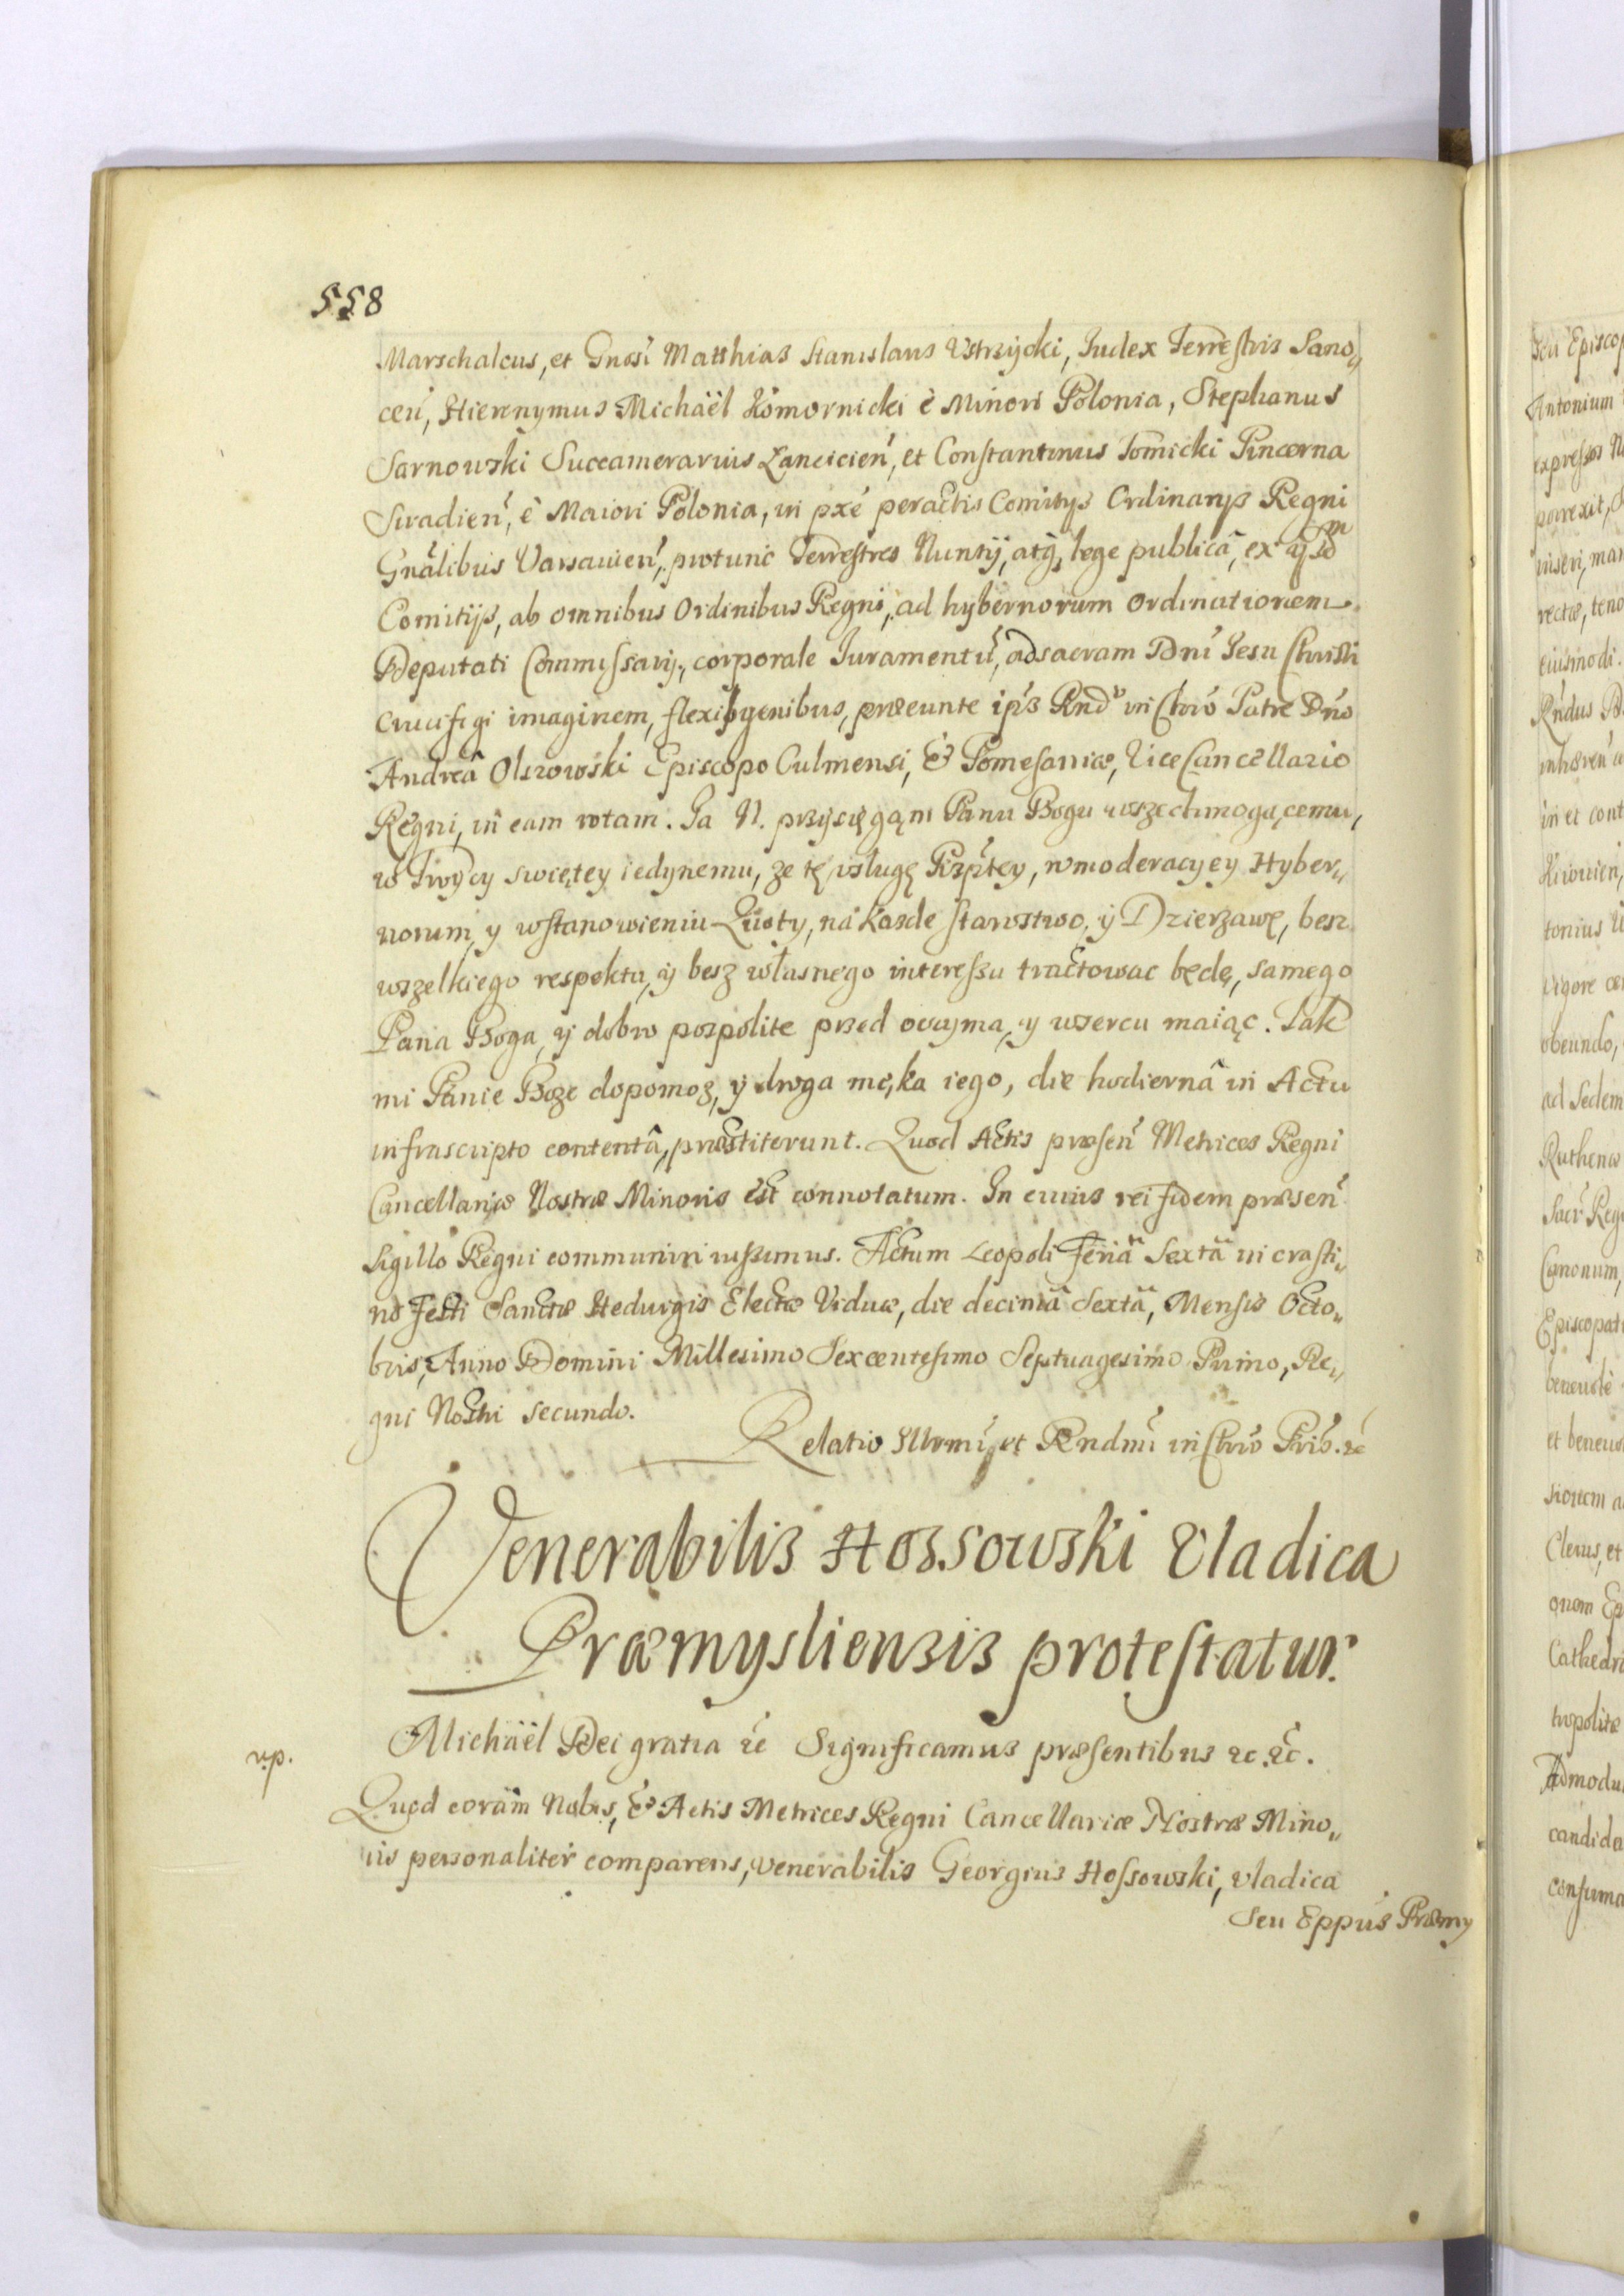 558
Marschalcus, et Gnosi Matthias Stanislaus Vstrzycki, Iudex Terrestris Sano„
ceń, Hieronymus Michaël Komornicki è Minori Polonia, Stephanus
Sarnowski Succamerarius Lancicień, et Constantinus Tomicki Pincerna
Siradień, è Maiori Polonia, in pxé peractis Comitys Ordinarys Regni
Gnâlibus Varsavień, protunc Terrestres Nuntij, atq, lege publicâ, ex ijsdm
Comitijs, ab omnibus Ordinibus Regni, ad hybernorum Ordinationem
Deputati Commissarij, corporale Iuramentū, ad sacram Dni Iesu Christi
Crucifigi imaginem, flexis genibus, præeunte ips Rndo in Chro Patre Dno
Andreâ Olszowski Episcopo Culmensi, & Pomesaniæ, ViceCancellario
Regni, in eam rotam. Ia N. przysięgąm Panu Bogu wszechmogącemu,
w Troycy swiętey iedynemu, ze tę vsługę Rzpltey, w moderacyey Hyber„
norum, y w stanowieniu Quoty, na kazde starostwo, y Dzierzawę, besz
wszelkiego respektu, y besz własnego interessu tractowac będę, samego
Pana Boga, y dobro pospolite przed oczyma, y w sercu maiąc. Tak
mi Panie Boze dopomoz, y droga męka iego, die hodiernâ in Actu
infrascripto contentâ, præstiterunt. Quod Actis præseń Metrices Regni
Cancellariæ Nostræ Minoris est connotatum. In cuius rei fidem præseń
Sigillo Regni communiri iussimus. Actum Leopoli Feriâ Sextâ in crasti„
no Festi Sanctæ Hedvigis Electæ Viduæ, die decimâ Sextâ, Mensis Octo„
bris, Anno Domini Millesimo Sexcentesimo Septuagesimo Primo, Re„
gni Nostri secundo.
Relatio Illrmi, et Rndmi in Chro Pris. &c
Venerabilis Hossowski Vladica
Præmysliensis protestatur.
Michaël Dei gratia &c Significamus præsentibus &c. &c.
Quod coram Nobis, & Actis Metrices Regni Cancellariæ Nostræ Mino„
ris personaliter comparens, venerabilis Georgius Hossowski, vladica
Seu Eppus Præmy